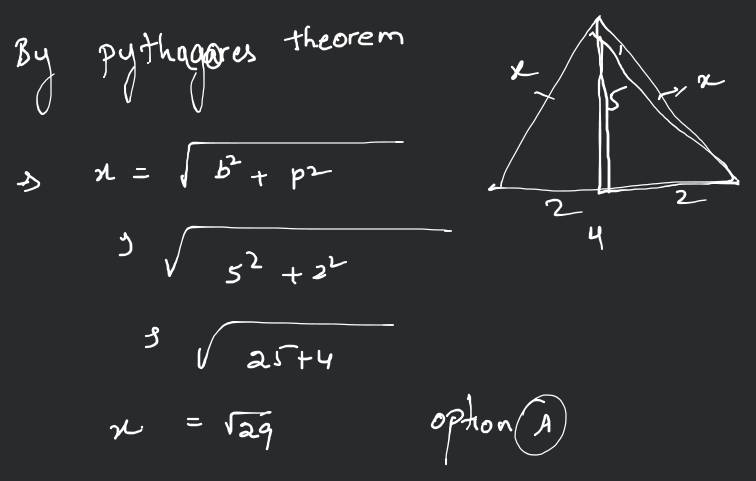 By pythagares theorem
⇒ x = √b² + p2
⇒ √5² + 2²
⇒ √25+4
x = √29
option A
x
5
x
2
2
4